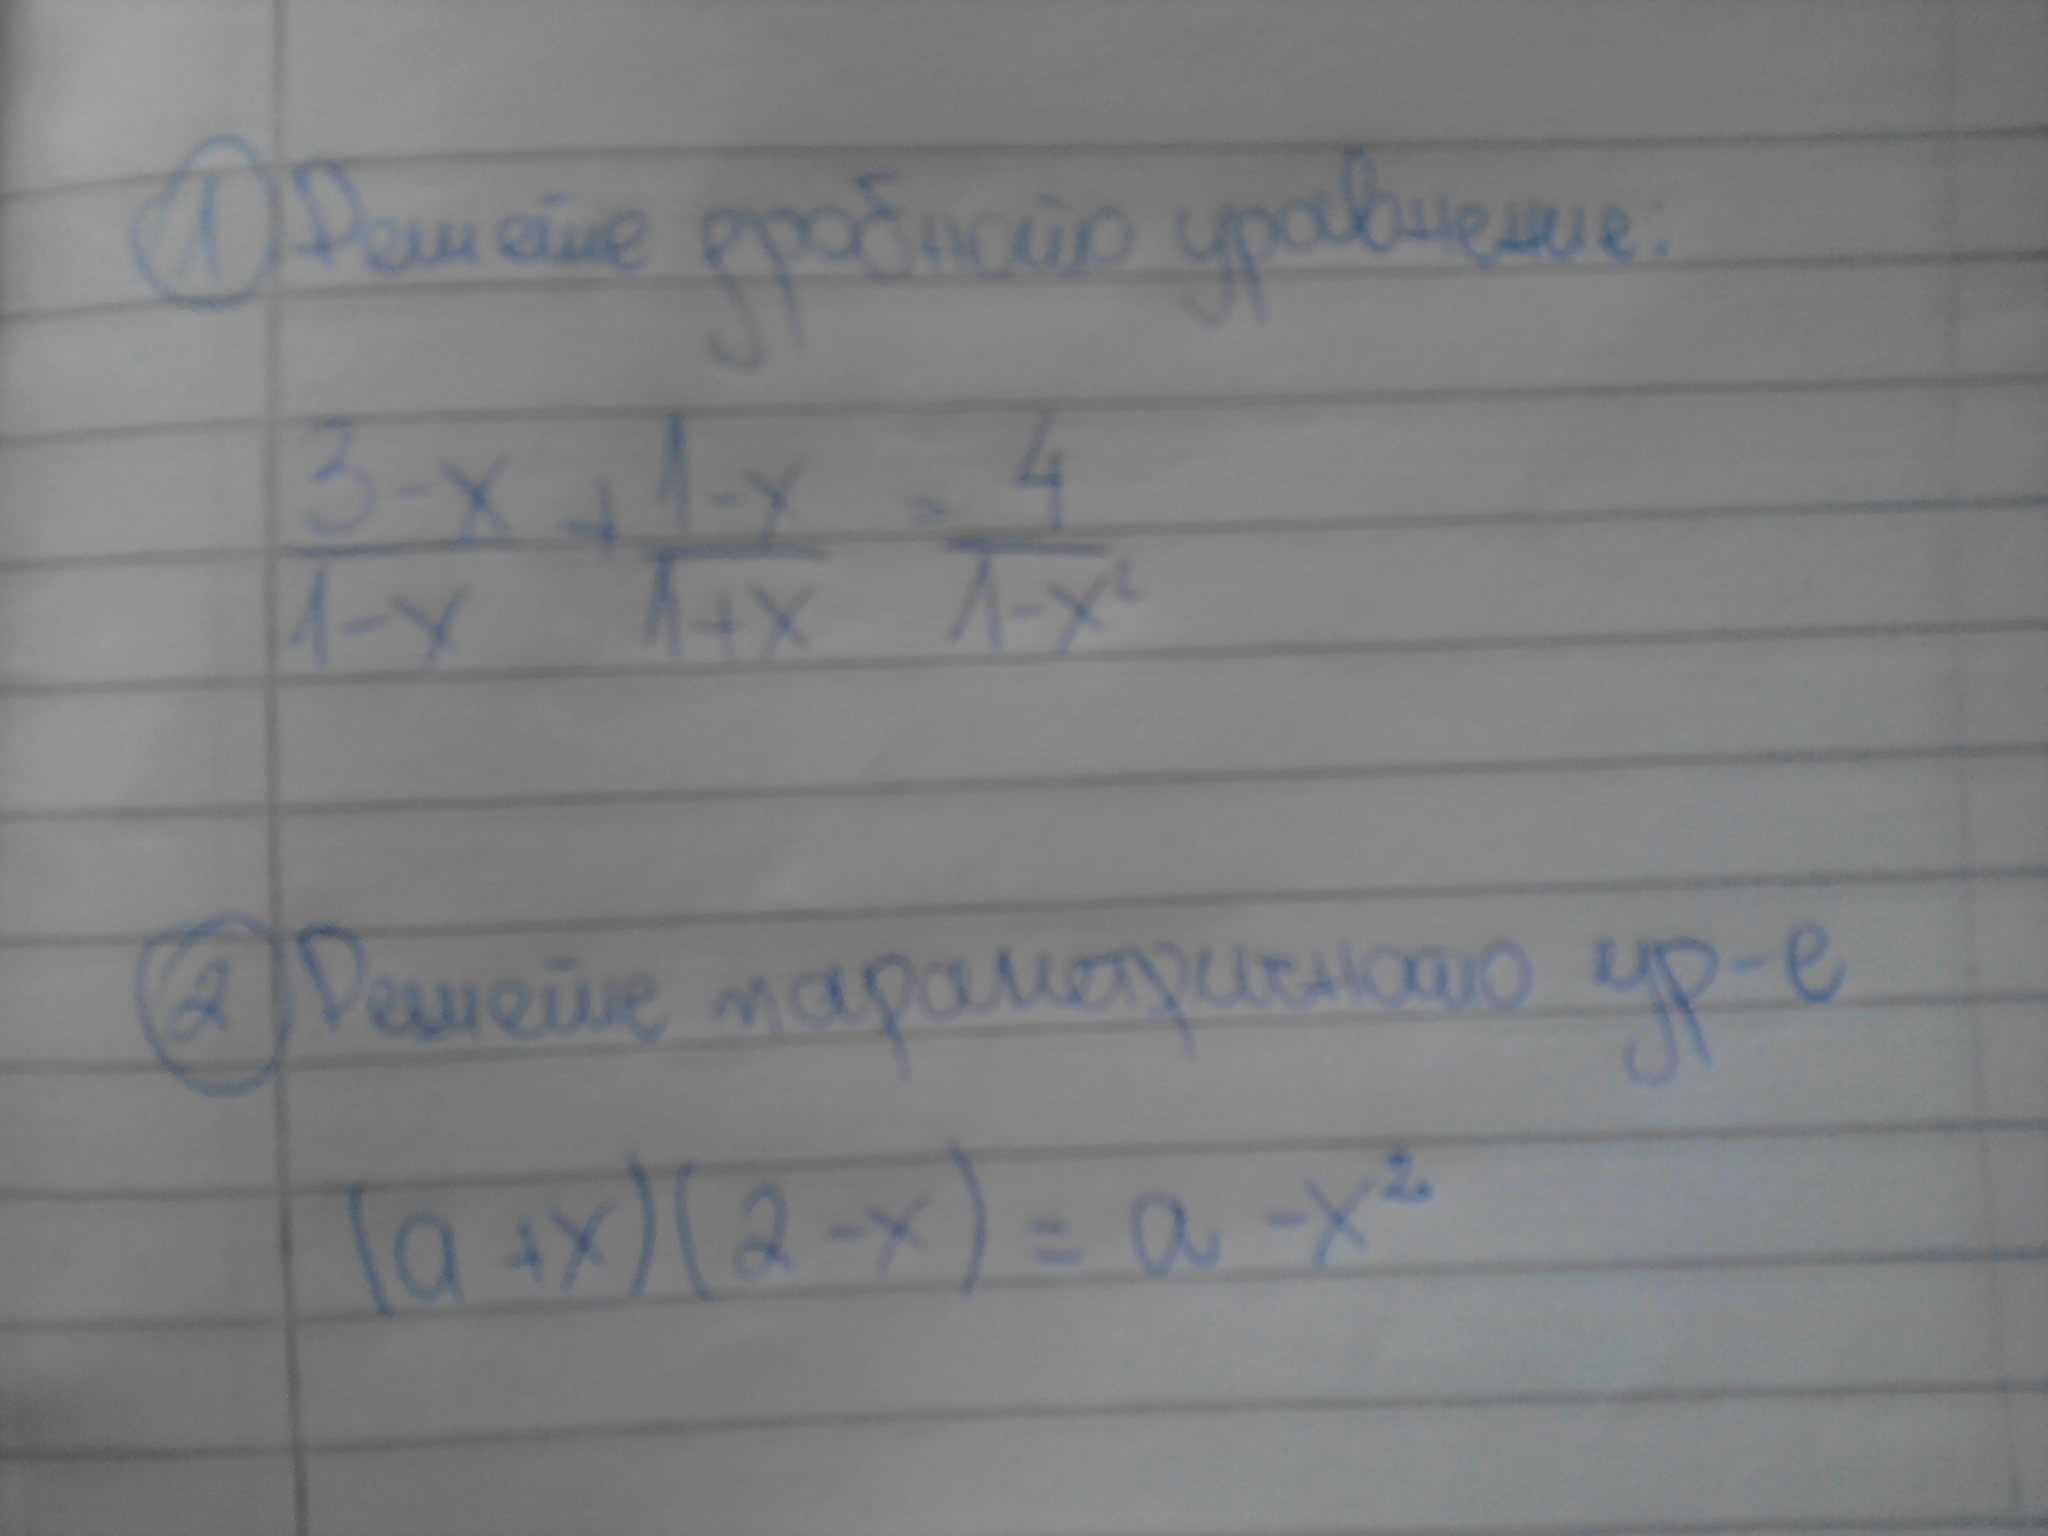 1 Решете дробното уравнение:
3-x/1-x + 1-x/1+x = 4/1-x²
2 Решете параметричното ур-е
(a+x)(2-x) = a-x²